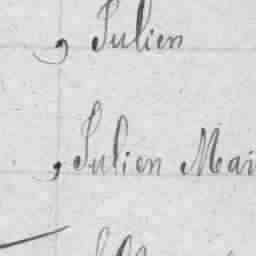 , Julien
, Julien Mai